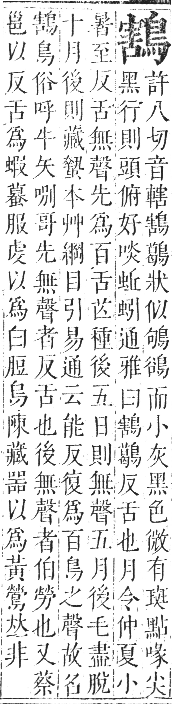 鶷
許八切音轄鶷鶡狀似鴝鵒而小灰黑色微有斑點喙尖
黑行則頭俯好啖蚯蚓通雅曰鶷鶡反舌也月令仲夏小
暑至反舌無聲先爲百舌㐁種後五日則無聲五月後毛盡脫
十月後則藏蟄本艸綱目引易通云能反復爲百鳥之聲故名
鶷鳥俗呼牛矢唎哥先無聲者反舌也後無聲者伯勞也又蔡
邕以反舌爲蝦蟇服虔以爲白脰烏陳藏器以爲黃鶯𠀤非